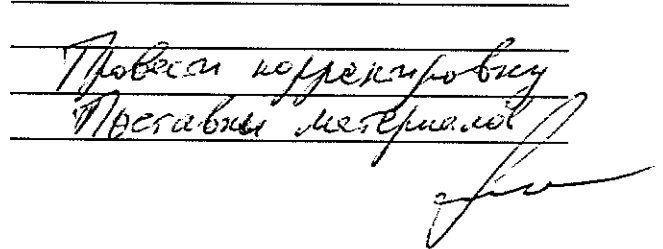 Провести корректировку
Поставки материалов